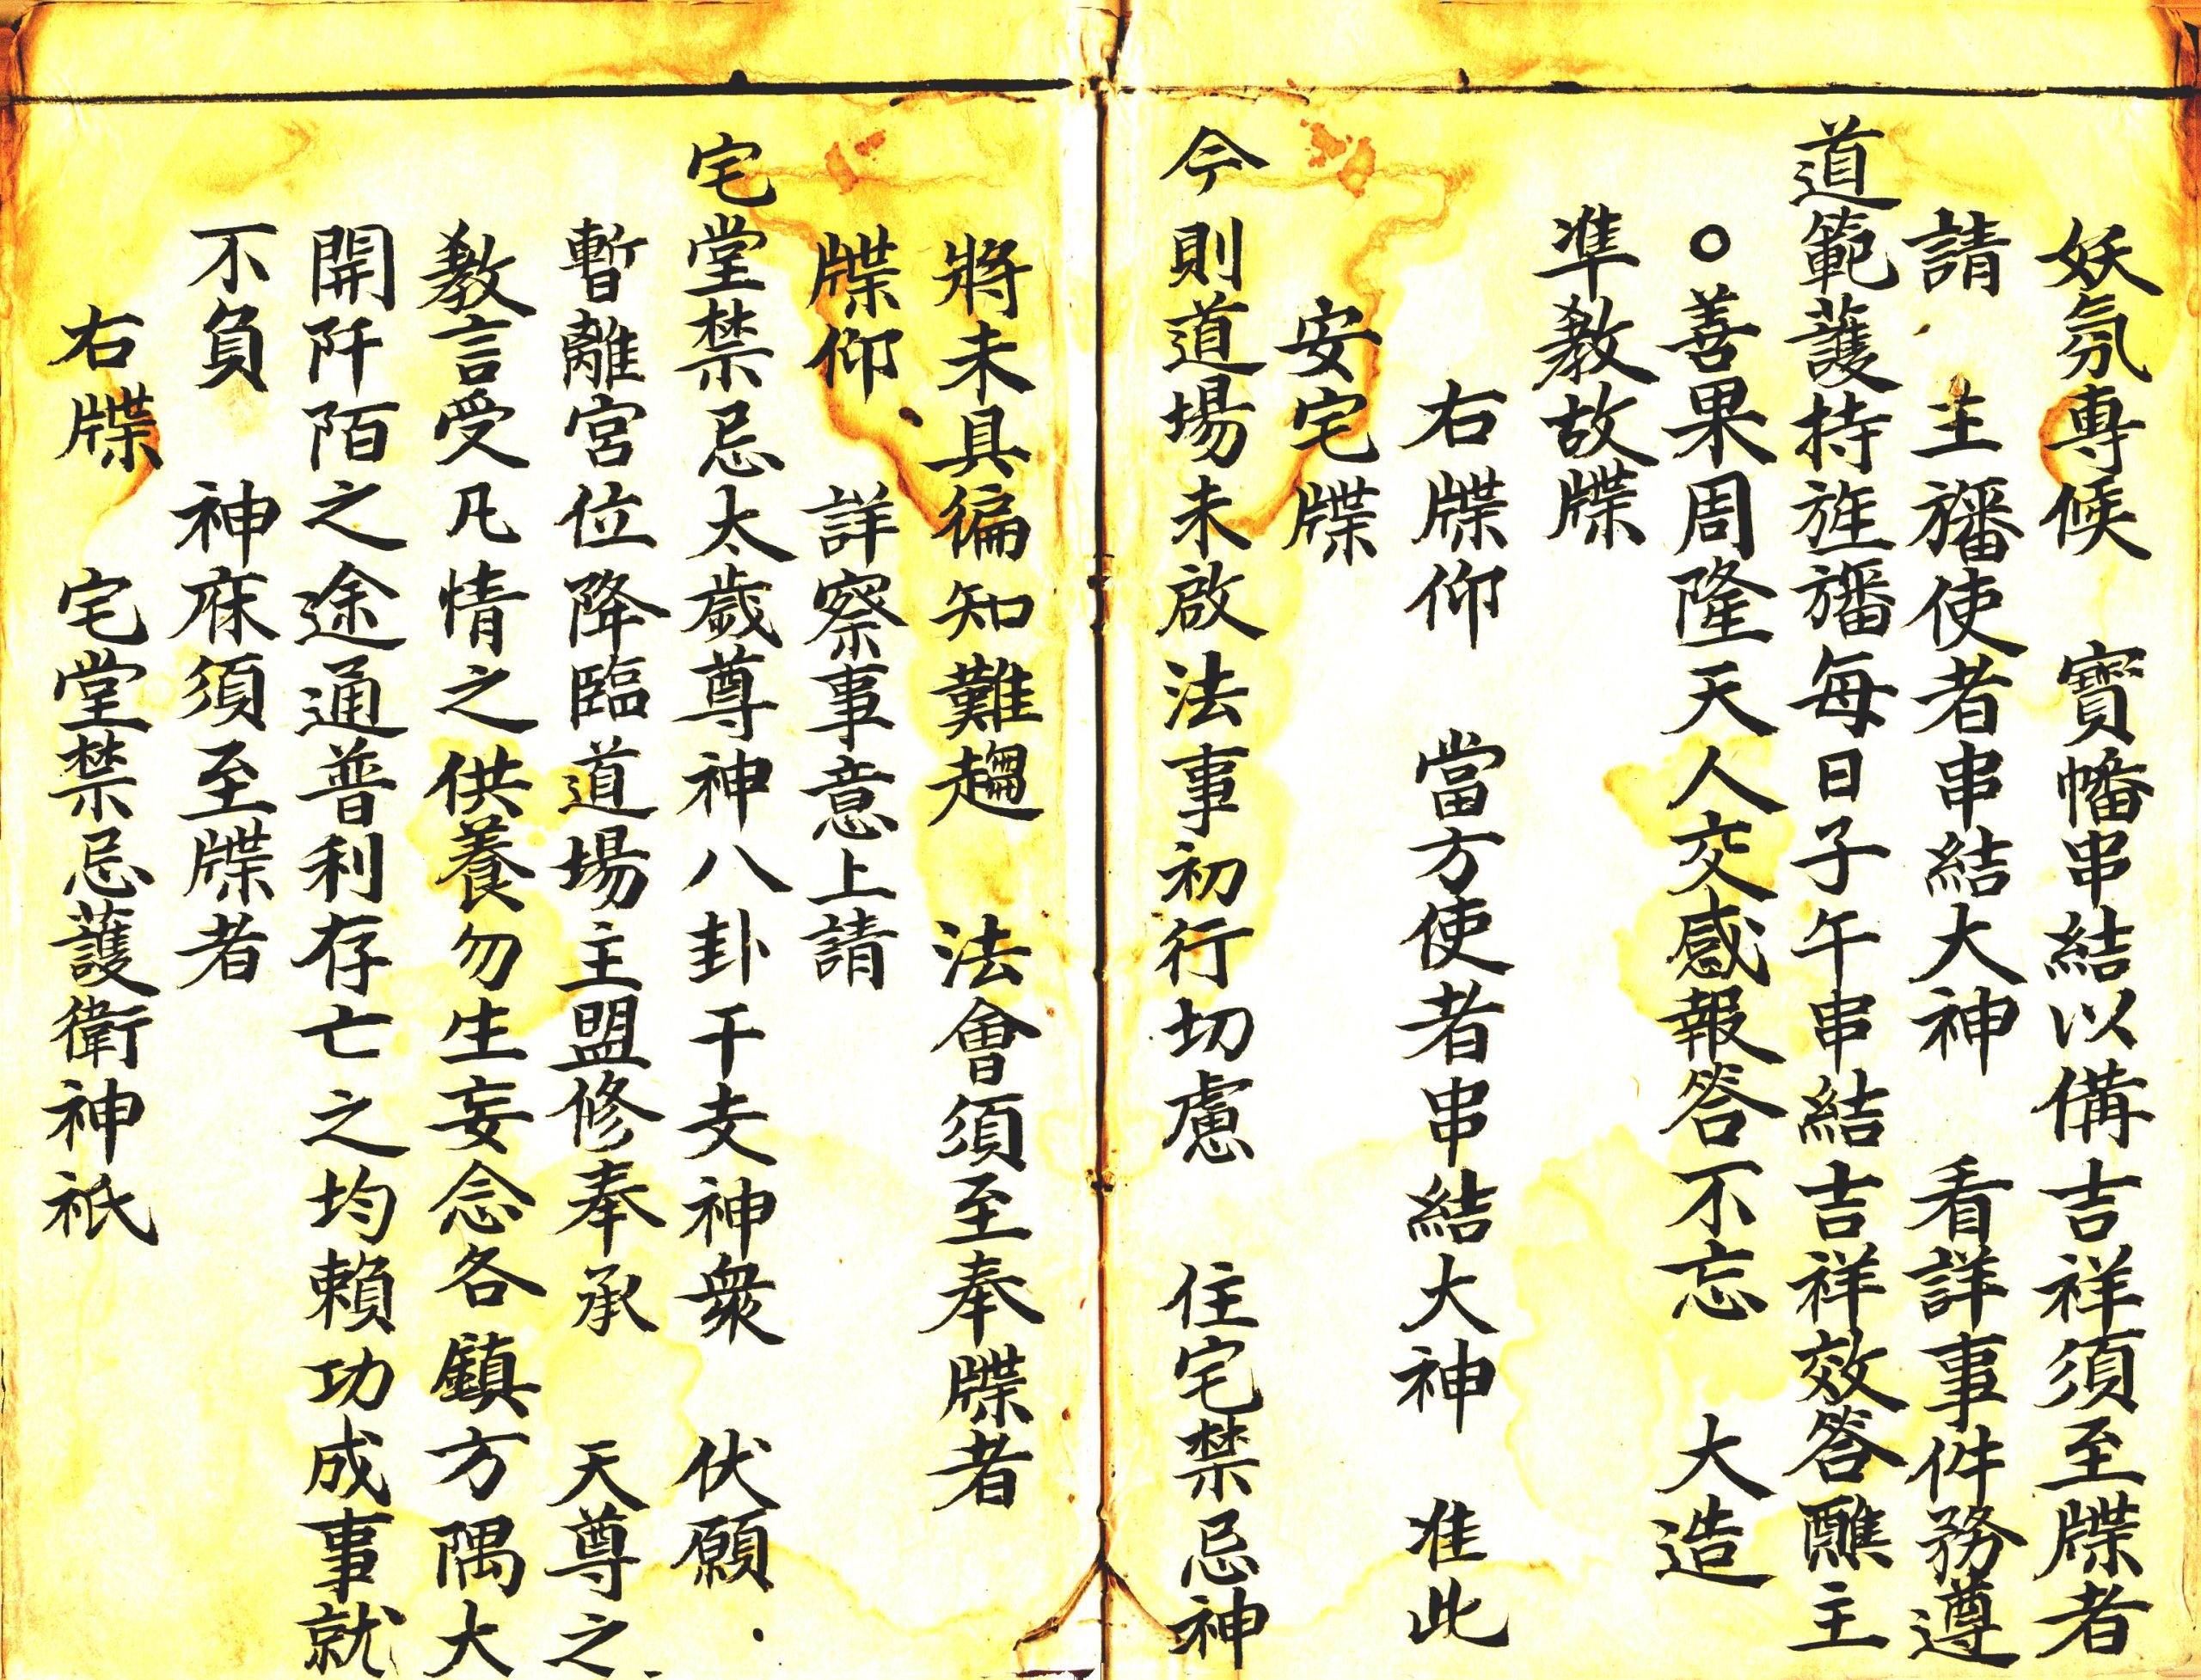 妖氛專候　寶幡串結以備吉祥須至牒者
請　主旛使者串結大神　看詳事件務遵
道範護持旌旛每日子午串結吉祥效答醮主
○善果周隆天人交感報答不忘　大造
準教故牒
右牒仰　當方使者串結大神　准此
安宅牒
今則道場未啟法事初行切慮　住宅禁忌神
將未具徧知難趨　法會須至奉牒者
牒仰　詳察事意上請
宅堂禁忌太歲尊神八卦干支神衆　伏願
暫離宮位降臨道場主盟修奉承　天尊之
教言受凡情之供養勿生妄念各鎮方隅大
開阡陌之途通普利存亡之均賴功成事就
不負　神庥須至牒者
右牒　宅堂禁忌護衛神祇